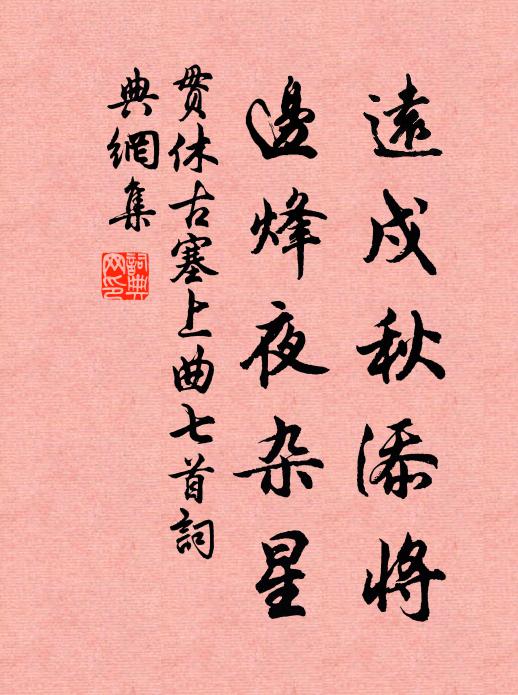 遠戍秋添將
邊烽夜杂星
贯休古塞上曲七首詞
典網集
詞典
网印